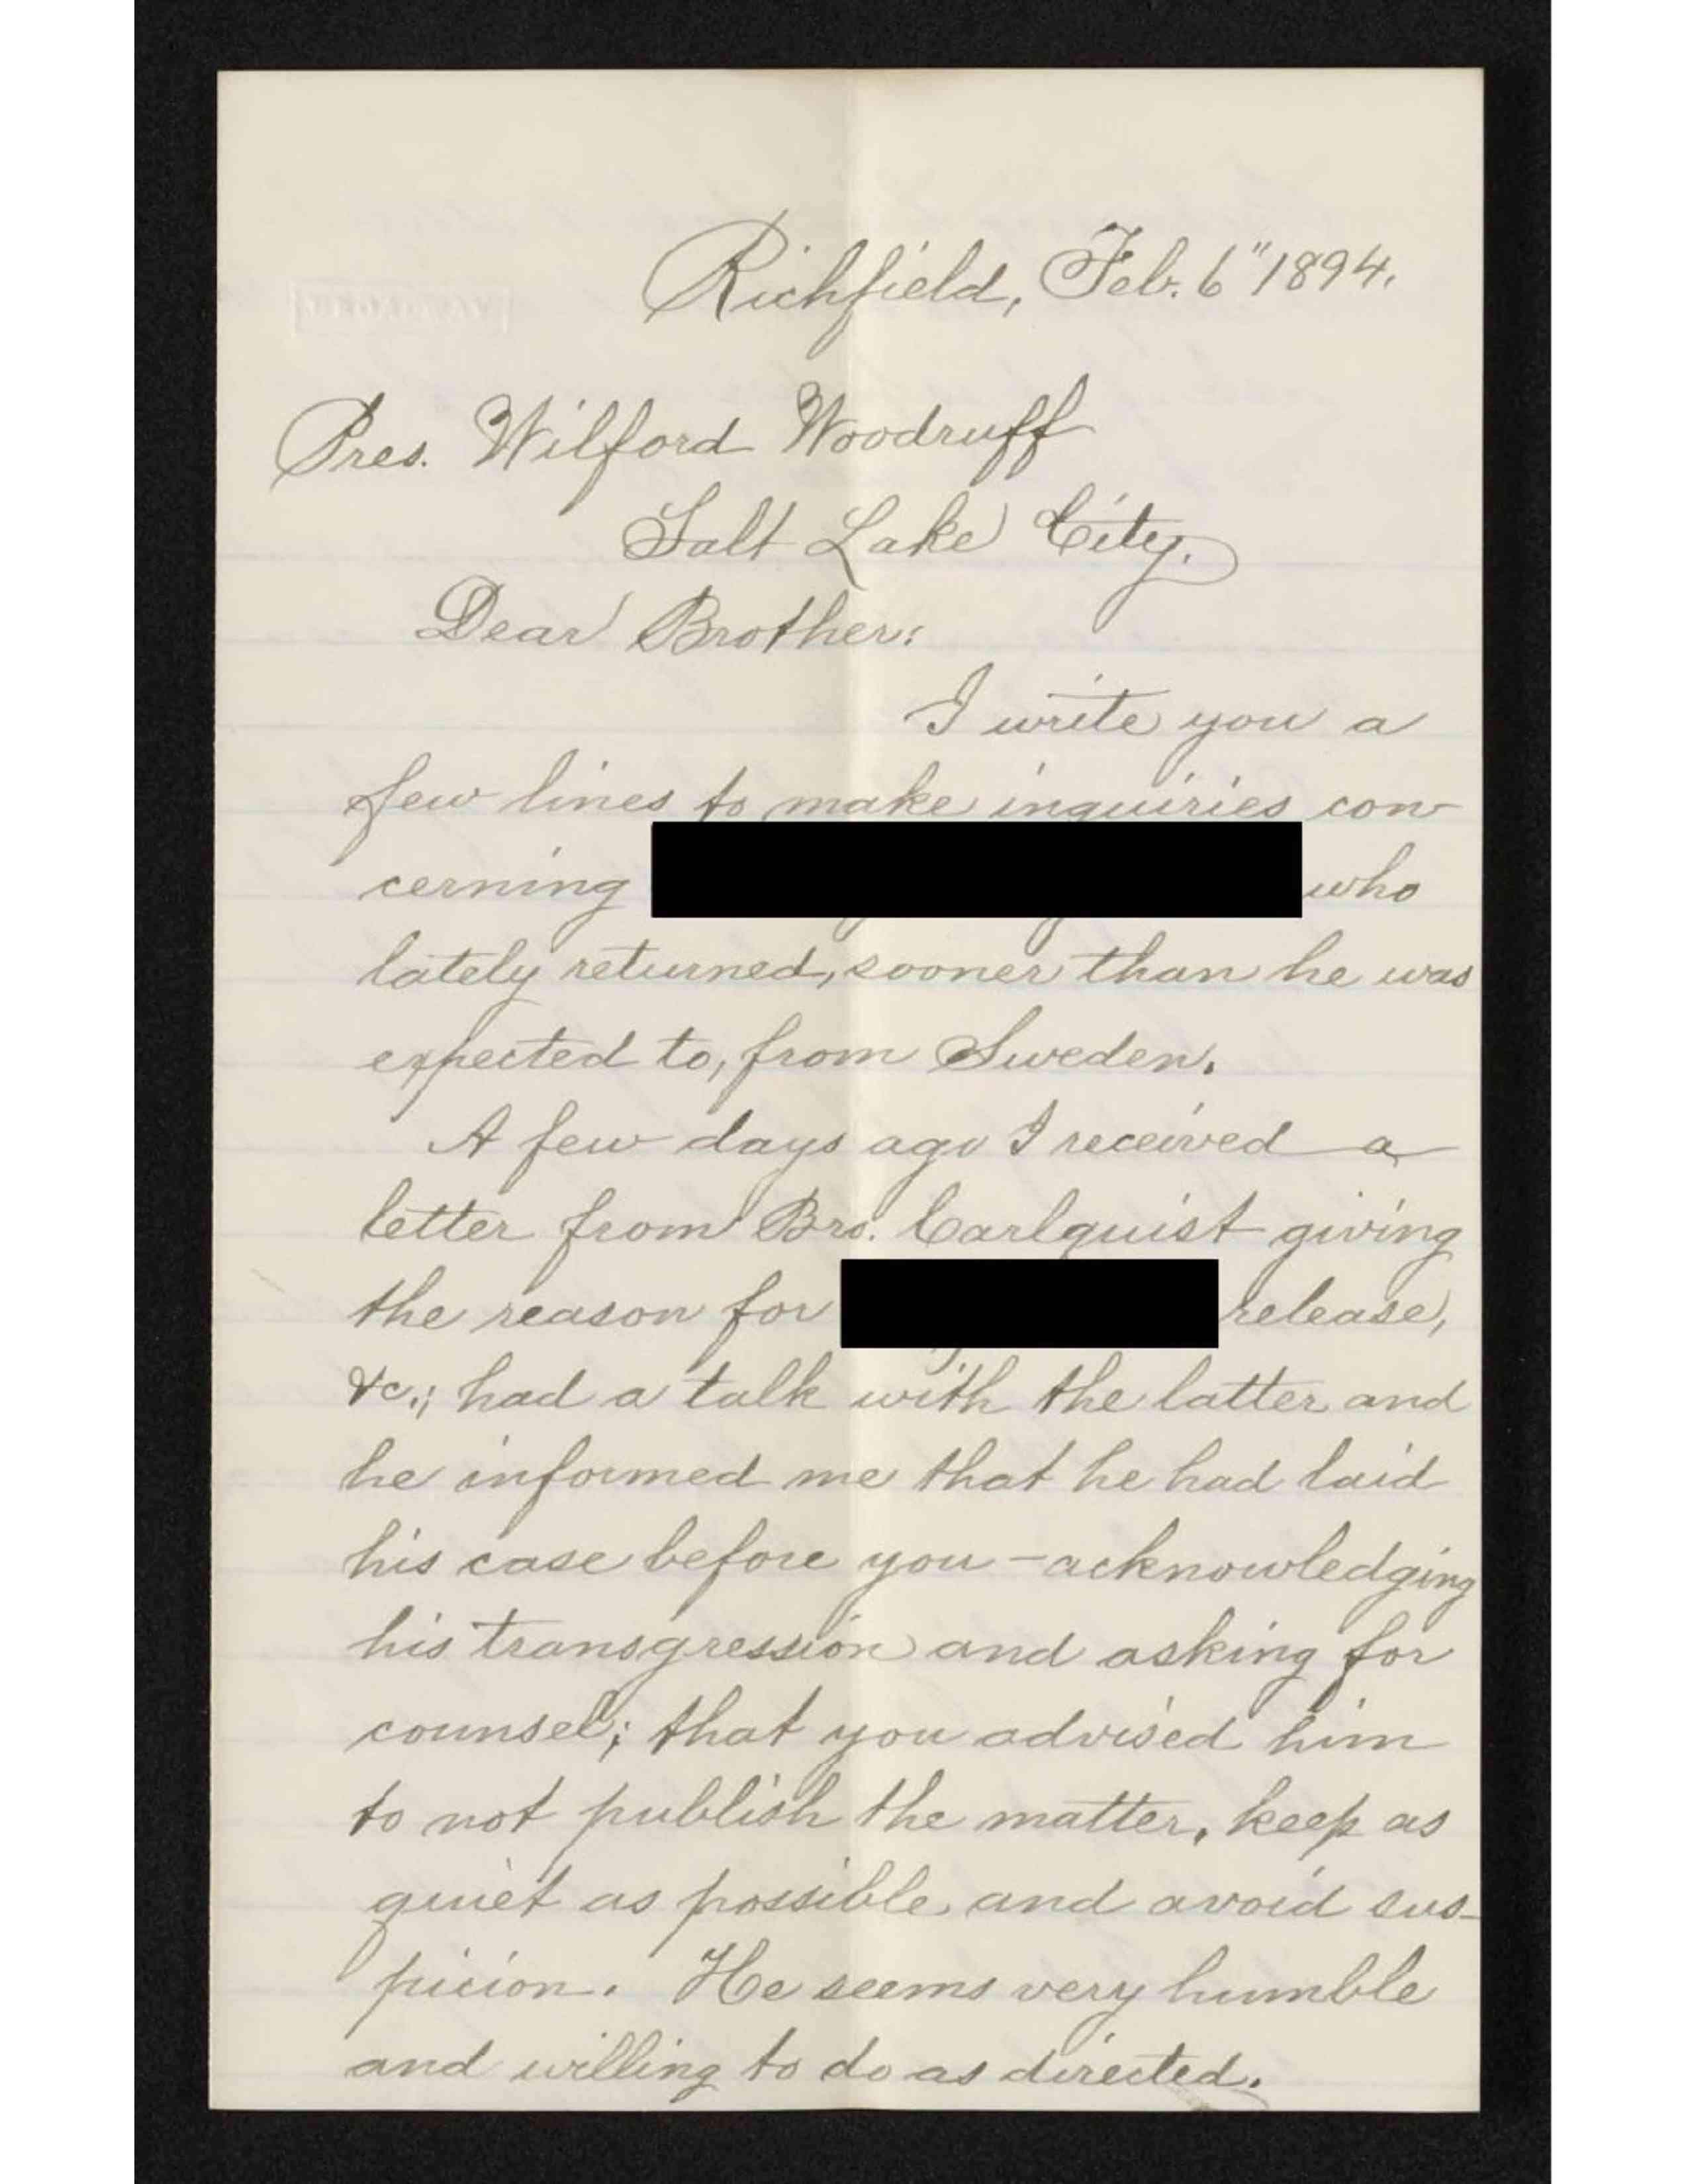 Richfield, Feb. 6" 1894.
Pres. Wilford Woodruff
Salt Lake City.
Dear Brother:
I write you a
few lines to make inquiries con-
cerning who
lately returned, sooner than he was
expected to, from Sweden.
A few days ago I received a
letter from Bro. Carlquist giving
the reason for release,
&c.; had a talk with the latter and
he informed me that he had laid
his case before you - acknowledging
his transgression and asking for
counsel; that you advised him
to not publish the matter, keep as
quiet as possible and avoid sus-
picion. He seems very humble
and willing to do as directed.